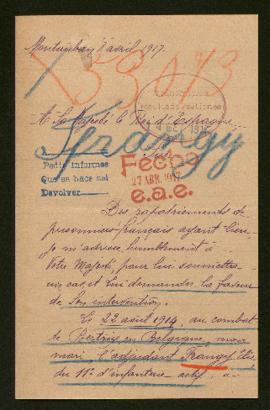 Montauban 7 avril 1917.
B 3073
A Sa Majesté le Roi d'Espagne
Frangy
Pedir informes
Que se hace así
Devolver
Fecho
27 ABR. 1917
e.a.e.
Des rapatriements de
prisonniers français ayant lieu,
je m'adresse humblement à
Votre Majesté, pour lui soumettre
un cas, et lui demander la faveur
de Son intervention.
Le 22 août 1914, au combat
de Bertrix en Belgique, mon
mari l'adjudant Frangy
du 11e d'infanterie